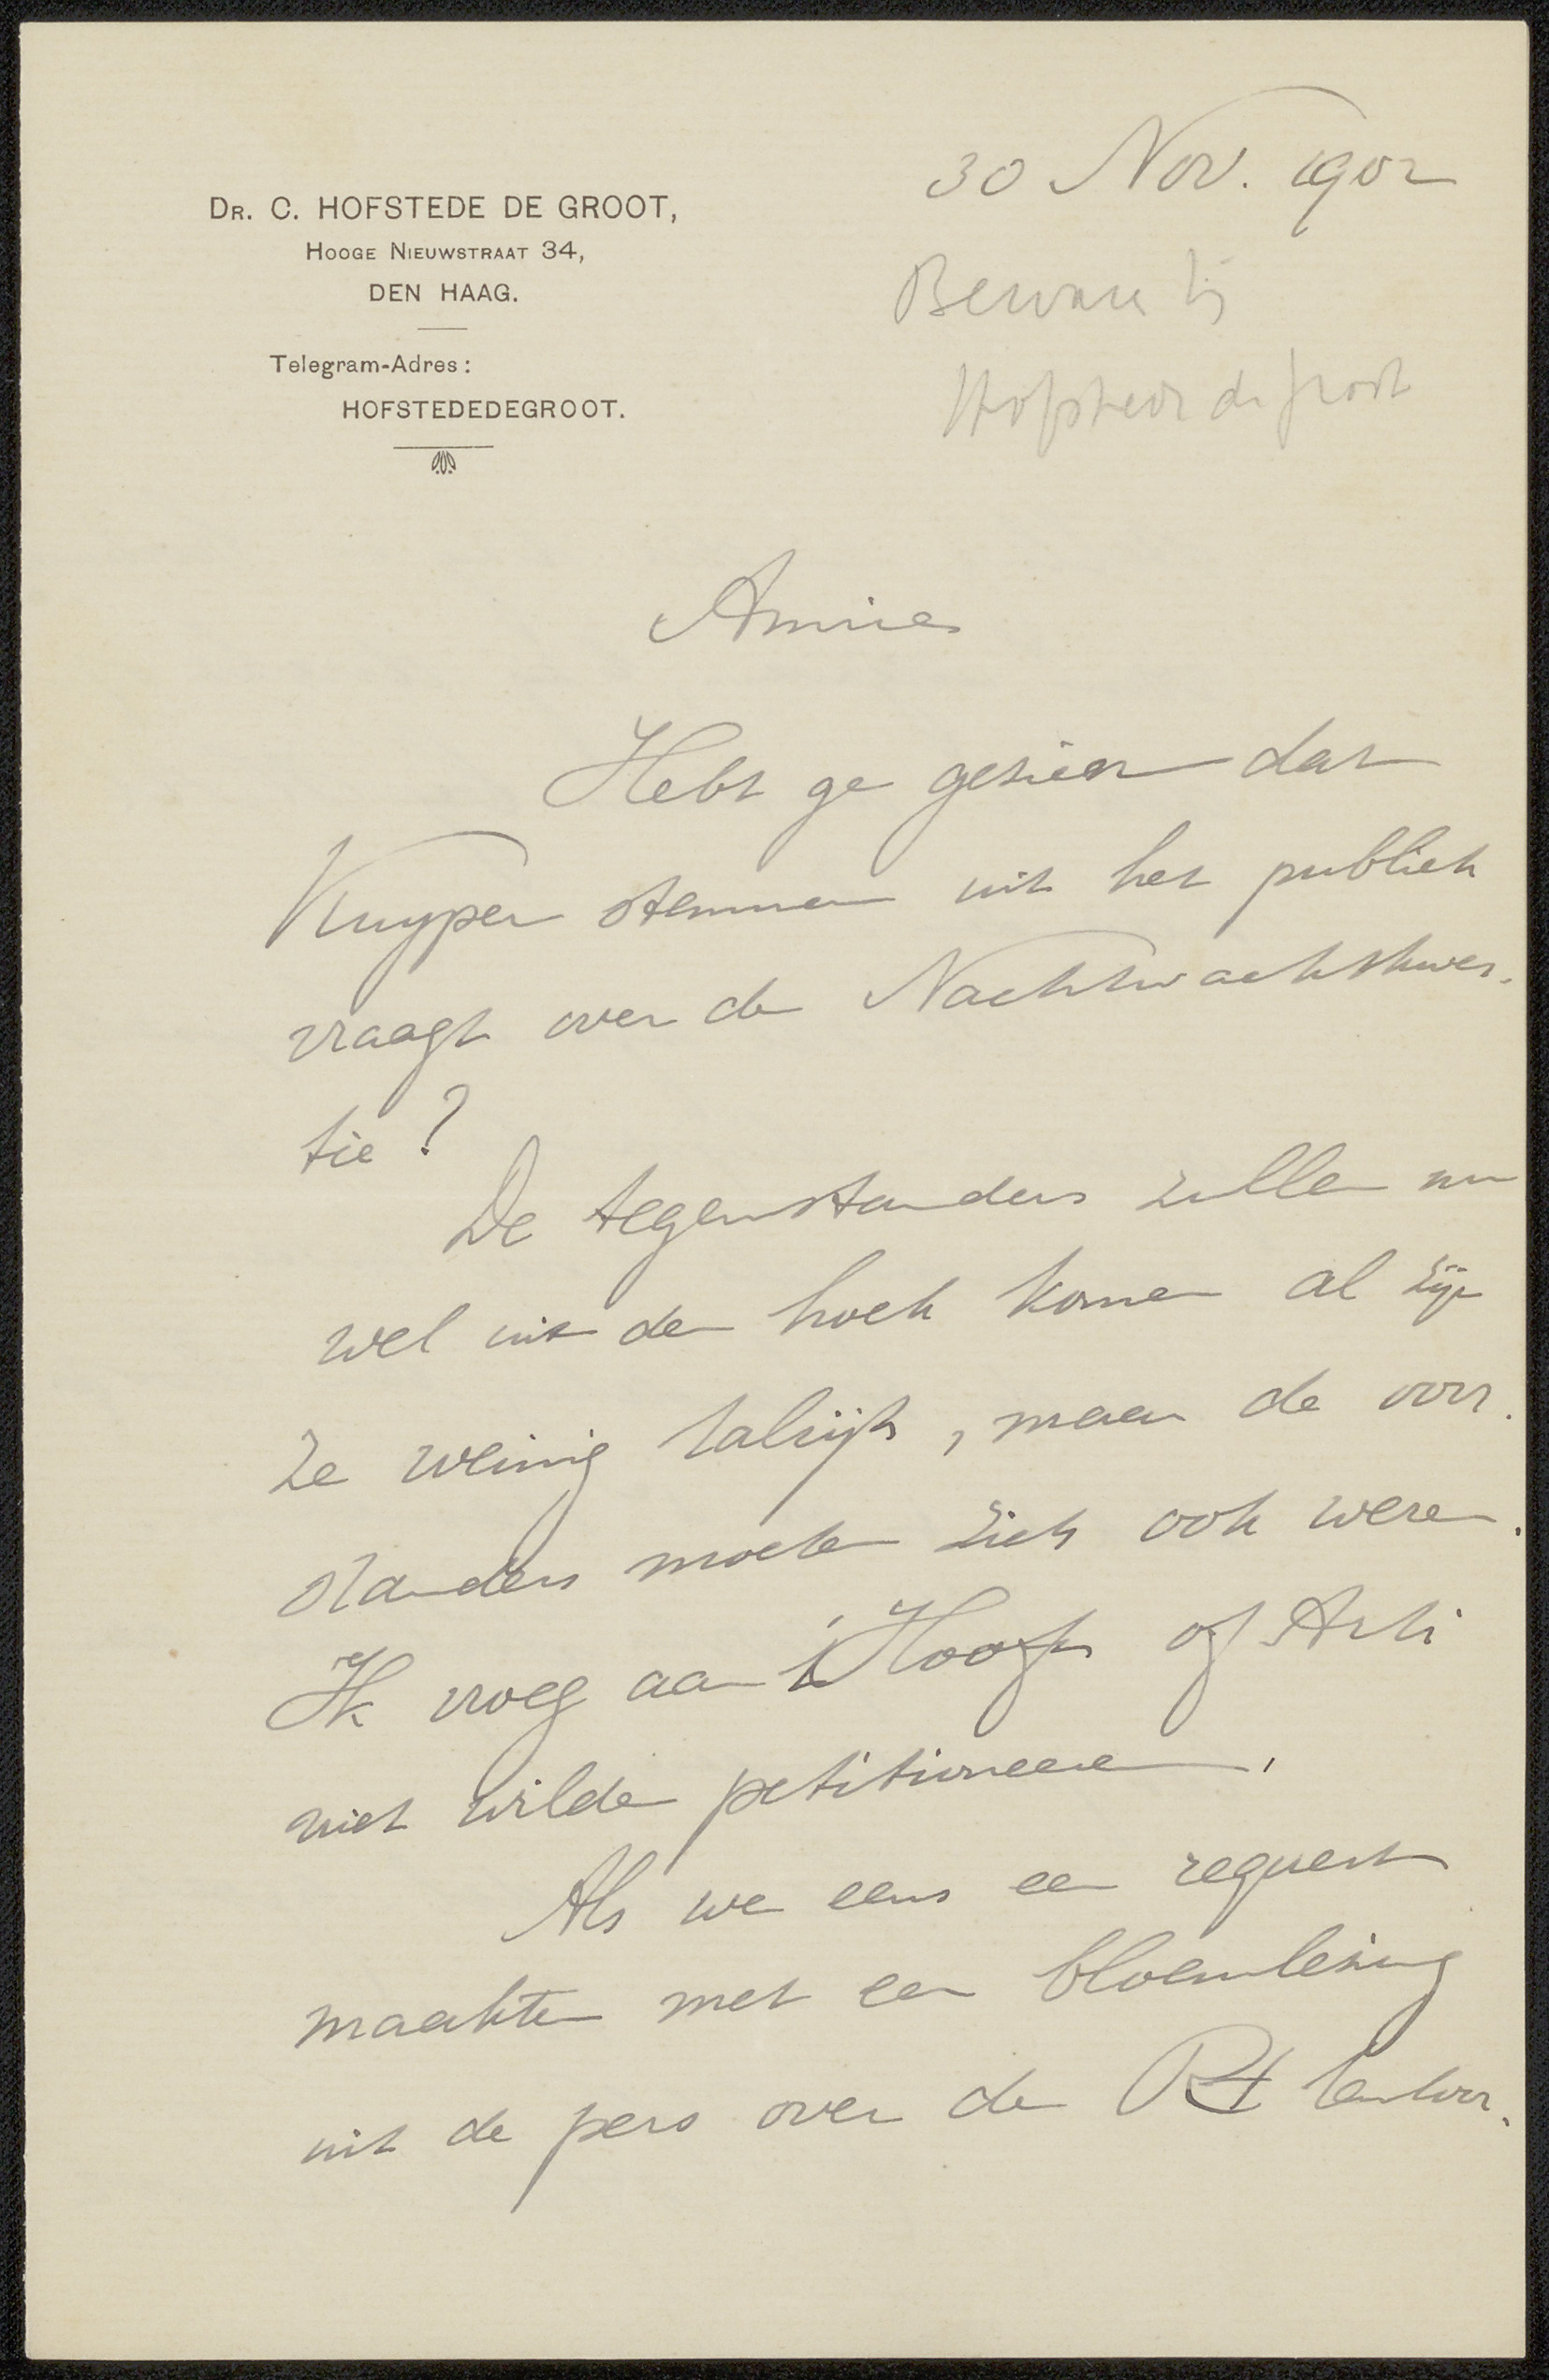 DR. C. HOFSTEDE DE GROOT,
HOOGE NIEUWSTRAAT 34,
DEN HAAG.
Telegram-Adres:
HOFSTEDEDEGROOT.
30 Nov. 1902
Beware bij
Hofstede de Groot
Amice
Hebt ge gezien dat
Kuyper stemmen uit het publiek
vraagt over de Nachtwachtkwes-
tie?
De tegenstanders zullen nu
wel uit den hoek komen al zijn
ze weinig talrijk, maar de voor-
standers moeten zich ook weren.
Ik vroeg aan 't Hooft of Arti
niet wilde petitioneeren.
Als we eens een request
maakten met een bloemlezing
uit de pers over de Rt tentoon-